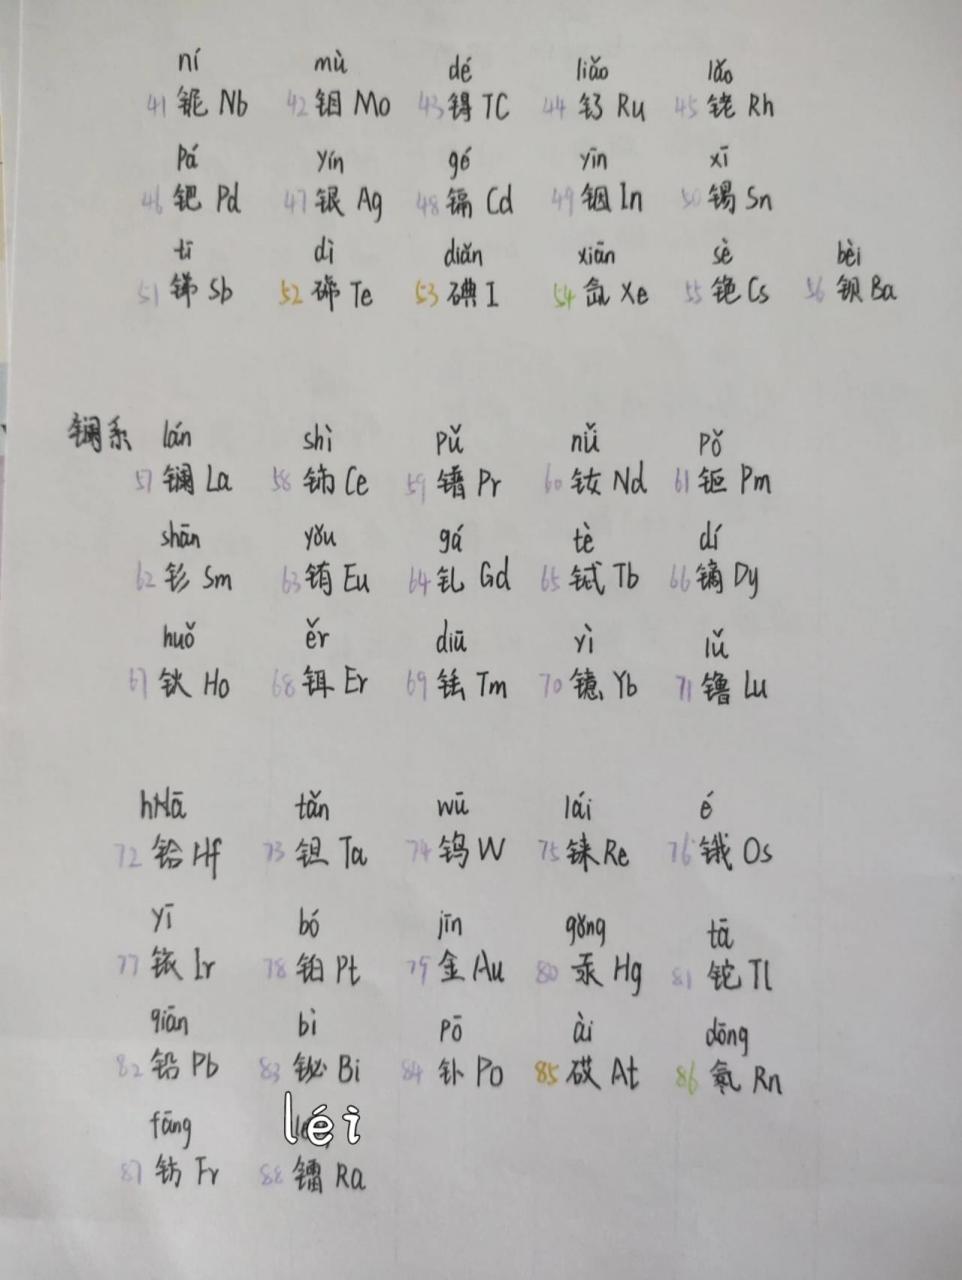 ní mù dé liǎo lǎo
41 铌 Nb 42 钼 Mo 43 锝 TC 44 钌 Ru 45 铑 Rh
pá yín gé yīn xī
46 钯 Pd 47 银 Ag 48 镉 Cd 49 铟 In 50 锡 Sn
tī dì diǎn xiān sè bèi
51 锑 Sb 52 碲 Te 53 碘 I 54 氙 Xe 55 铯 Cs 56 钡 Ba
镧系 lán shì pǔ nǚ pǒ
57 镧 La 58 铈 Ce 59 镨 Pr 60 钕 Nd 61 钷 Pm
shān yǒu gá tè dí
62 钐 Sm 63 铕 Eu 64 钆 Gd 65 铽 Tb 66 镝 Dy
huǒ ěr diū yì lǔ
67 钬 Ho 68 铒 Er 69 铥 Tm 70 镱 Yb 71 镥 Lu
hā tǎn wū lái é
72 铪 Hf 73 钽 Ta 74 钨 W 75 铼 Re 76 锇 Os
yī bó jīn gǒng tā
77 铱 Ir 78 铂 Pt 79 金 Au 80 汞 Hg 81 铊 Tl
qiān bì pō ài dōng
82 铅 Pb 83 铋 Bi 84 钋 Po 85 砹 At 86 氡 Rn
fāng léi
87 钫 Fr 88 镭 Ra